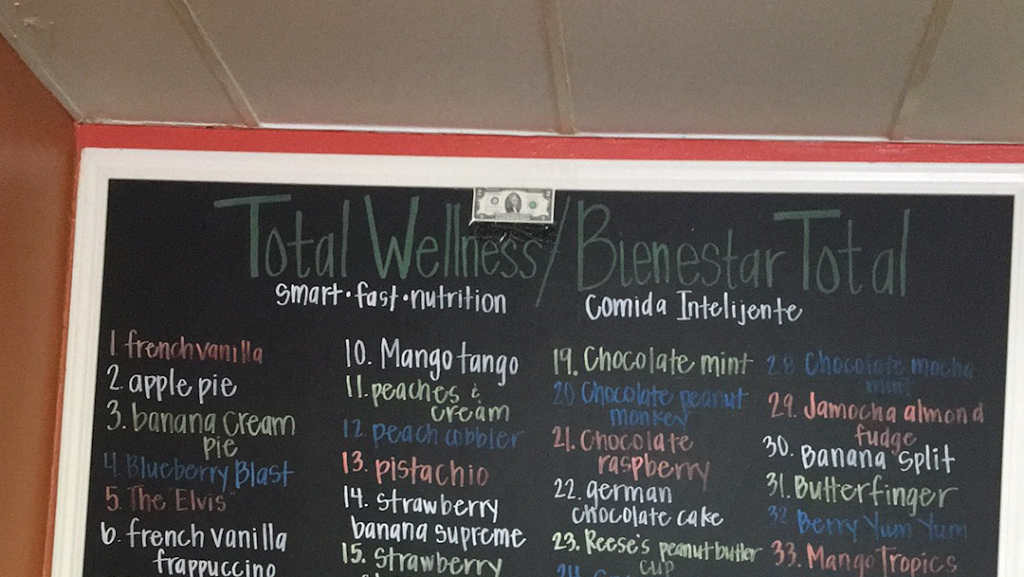 Total Wellness/Bienestar Total
smart·fast·nutrition
Comida Intelijente
1. french vanilla
2. apple pie
3. banana cream
pie
4. Blueberry Blast
5. The "Elvis"
6. french vanilla
frappuccino
10. Mango tango
11. peaches &
cream
12. peach cobbler
13. pistachio
14. strawberry
banana supreme
15. strawberry
19. Chocolate mint
20 Chocolate peanut
monkey
21. Chocolate
raspberry
22. german
chocolate cake
23. Reese's peanut butter
cup
24.
28 Chocolate mocha
mint
29. Jamocha almond
fudge
30. Banana split
31. Butterfinger
32 Berry Yum Yum
33. Mango Tropics